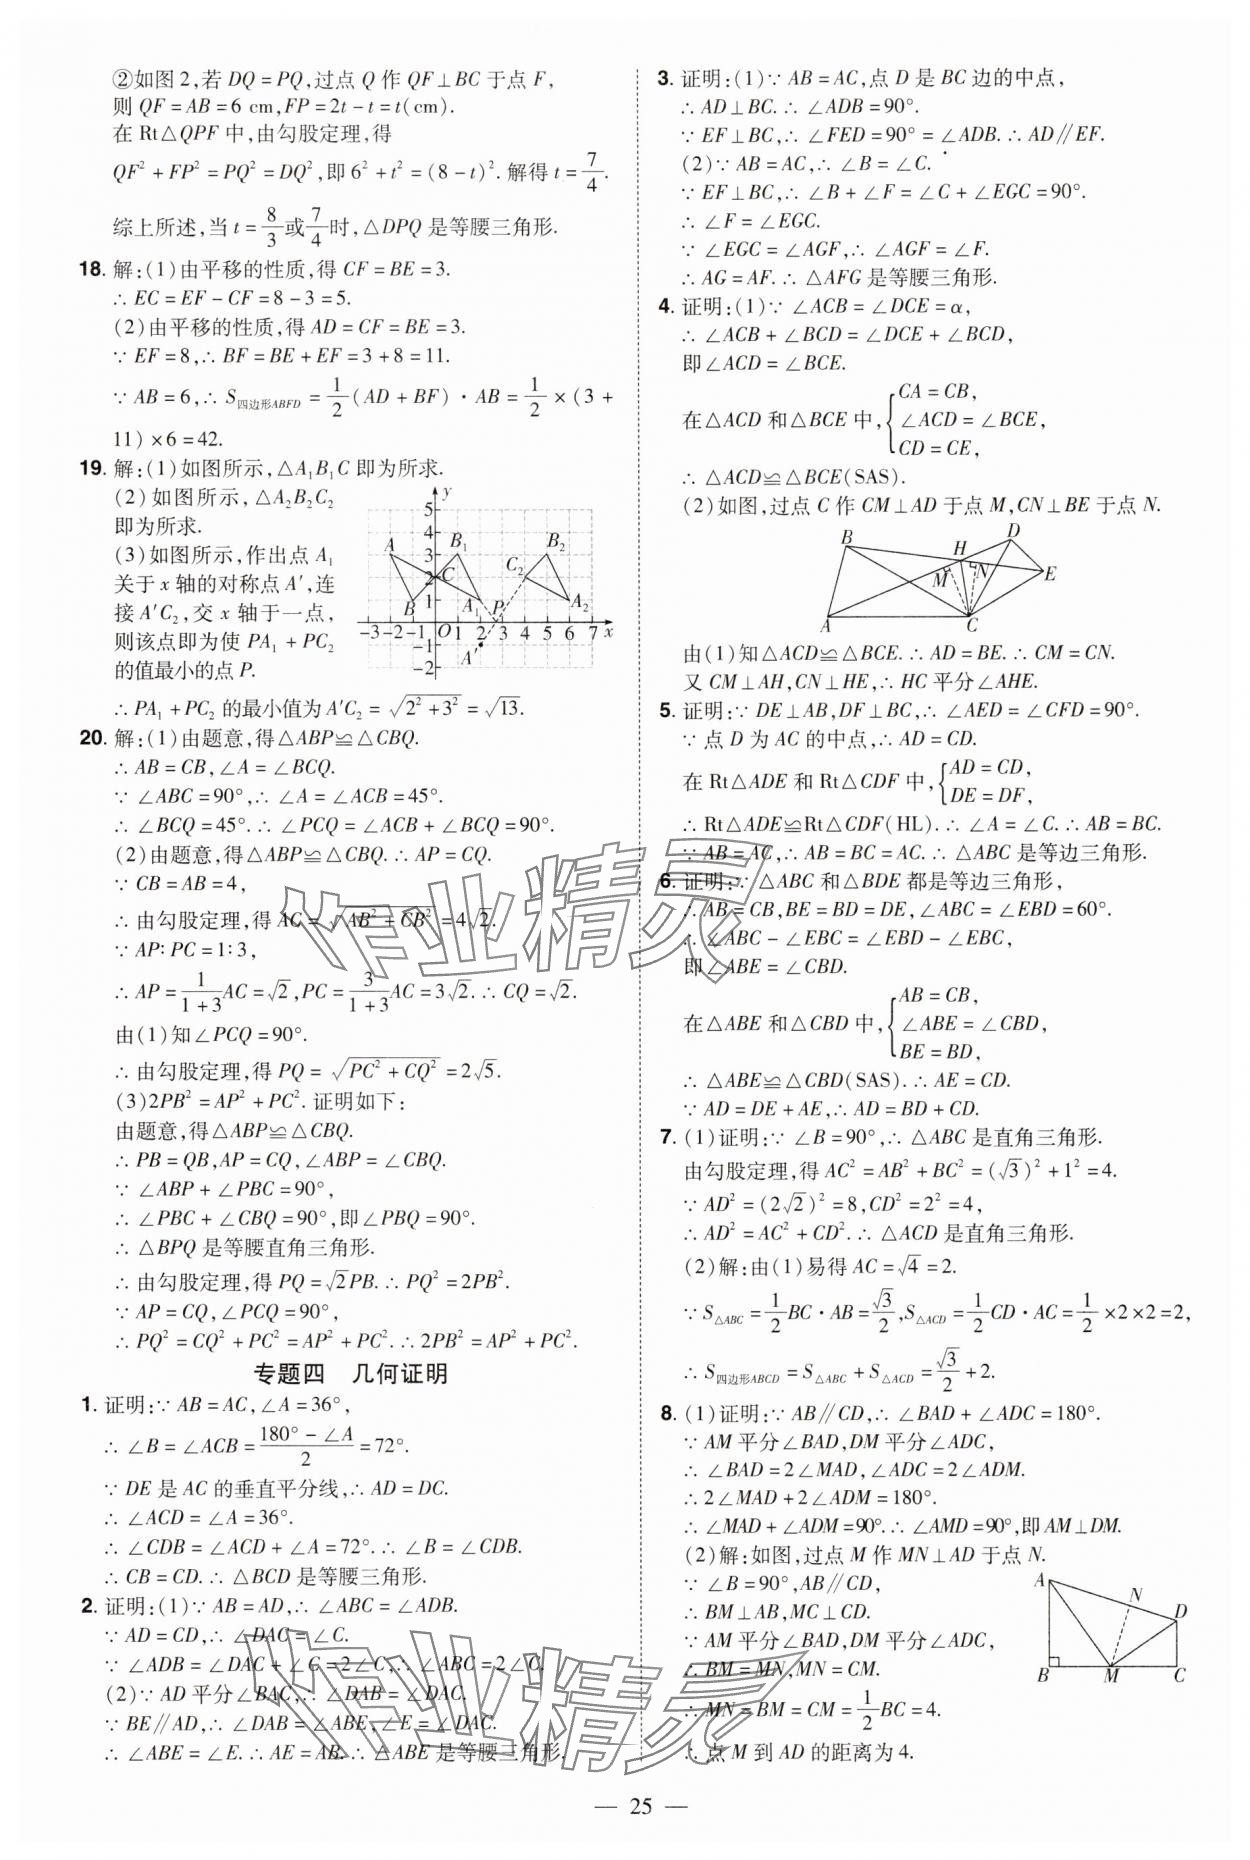 ②如图2,若 DQ=PQ,过点 Q 作 QF⊥BC 于点 F,
则 QF=AB=6 cm,FP=2t-t=t(cm).
在 Rt△QPF 中,由勾股定理,得
QF²+FP²=PQ²=DQ²,即 6²+t²=(8-t)².解得 t=7/4.
综上所述,当 t=8/3或7/4时,△DPQ 是等腰三角形.
18. 解:(1)由平移的性质,得 CF=BE=3.
∴ EC=EF-CF=8-3=5.
(2)由平移的性质,得 AD=CF=BE=3.
∵ EF=8,∴ BF=BE+EF=3+8=11.
∵ AB=6,∴ S四边形ABFD=1/2(AD+BF)·AB=1/2×(3+
11)×6=42.
19. 解:(1)如图所示,△A₁B₁C 即为所求.
(2)如图所示,△A₂B₂C₂
即为所求.
(3)如图所示,作出点 A₁
关于 x 轴的对称点 A′,连
接 A′C₂,交 x 轴于一点,
则该点即为使 PA₁+PC₂
的值最小的点 P.
y
5
4
3
2
1
-1
-2
-3 -2 -1 O 1 2 3 4 5 6 7 x
A B C B₁ A₁ P A′ C₂ B₂ A₂
∴ PA₁+PC₂ 的最小值为 A′C₂=√(2²+3²)=√13.
20. 解:(1)由题意,得△ABP≌△CBQ.
∴ AB=CB,∠A=∠BCQ.
∵ ∠ABC=90°,∴ ∠A=∠ACB=45°.
∴ ∠BCQ=45°.∴ ∠PCQ=∠ACB+∠BCQ=90°.
(2)由题意,得△ABP≌△CBQ.∴ AP=CQ.
∵ CB=AB=4,
∴ 由勾股定理,得 AC=√(AB²+CB²)=4√2.
∵ AP∶PC=1∶3,
∴ AP=1/(1+3)AC=√2,PC=3/(1+3)AC=3√2.∴ CQ=√2.
由(1)知∠PCQ=90°.
∴ 由勾股定理,得 PQ=√(PC²+CQ²)=2√5.
(3)2PB²=AP²+PC².证明如下:
由题意,得△ABP≌△CBQ.
∴ PB=QB,AP=CQ,∠ABP=∠CBQ.
∵ ∠ABP+∠PBC=90°,
∴ ∠PBC+∠CBQ=90°,即∠PBQ=90°.
∴ △BPQ 是等腰直角三角形.
∴ 由勾股定理,得 PQ=√2PB.∴ PQ²=2PB².
∵ AP=CQ,∠PCQ=90°,
∴ PQ²=CQ²+PC²=AP²+PC².∴ 2PB²=AP²+PC².
专题四 几何证明
1. 证明:∵ AB=AC,∠A=36°,
∴ ∠B=∠ACB=(180°-∠A)/2=72°.
∵ DE 是 AC 的垂直平分线,∴ AD=DC.
∴ ∠ACD=∠A=36°.
∴ ∠CDB=∠ACD+∠A=72°.∴ ∠B=∠CDB.
∴ CB=CD.∴ △BCD 是等腰三角形.
2. 证明:(1)∵ AB=AD,∴ ∠ABC=∠ADB.
∵ AD=CD,∴ ∠DAC=∠C.
∵ ∠ADB=∠DAC+∠C=2∠C,∴ ∠ABC=2∠C.
(2)∵ AD 平分∠BAC,∴ ∠DAB=∠DAC.
∵ BE∥AD,∴ ∠DAB=∠ABE,∠E=∠DAC.
∴ ∠ABE=∠E.∴ AE=AB.∴ △ABE 是等腰三角形.
3. 证明:(1)∵ AB=AC,点 D 是 BC 边的中点,
∴ AD⊥BC.∴ ∠ADB=90°.
∵ EF⊥BC,∴ ∠FED=90°=∠ADB.∴ AD∥EF.
(2)∵ AB=AC,∴ ∠B=∠C.
∵ EF⊥BC,∴ ∠B+∠F=∠C+∠EGC=90°.
∴ ∠F=∠EGC.
∵ ∠EGC=∠AGF,∴ ∠AGF=∠F.
∴ AG=AF.∴ △AFG 是等腰三角形.
4. 证明:(1)∵ ∠ACB=∠DCE=α,
∴ ∠ACB+∠BCD=∠DCE+∠BCD,
即∠ACD=∠BCE.
在△ACD 和△BCE 中,{CA=CB,
∠ACD=∠BCE,
CD=CE,
∴ △ACD≌△BCE(SAS).
(2)如图,过点 C 作 CM⊥AD 于点 M,CN⊥BE 于点 N.
B H D M N E A C
由(1)知△ACD≌△BCE.∴ AD=BE.∴ CM=CN.
又 CM⊥AH,CN⊥HE,∴ HC 平分∠AHE.
5. 证明:∵ DE⊥AB,DF⊥BC,∴ ∠AED=∠CFD=90°.
∵ 点 D 为 AC 的中点,∴ AD=CD.
在 Rt△ADE 和 Rt△CDF 中,{AD=CD,
DE=DF,
∴ Rt△ADE≌Rt△CDF(HL).∴ ∠A=∠C.∴ AB=BC.
∵ AB=AC,∴ AB=BC=AC.∴ △ABC 是等边三角形.
6. 证明:∵ △ABC 和△BDE 都是等边三角形,
∴ AB=CB,BE=BD=DE,∠ABC=∠EBD=60°.
∴ ∠ABC-∠EBC=∠EBD-∠EBC,
即∠ABE=∠CBD.
在△ABE 和△CBD 中,{AB=CB,
∠ABE=∠CBD,
BE=BD,
∴ △ABE≌△CBD(SAS).∴ AE=CD.
∵ AD=DE+AE,∴ AD=BD+CD.
7. (1)证明:∵ ∠B=90°,∴ △ABC 是直角三角形.
由勾股定理,得 AC²=AB²+BC²=(√3)²+1²=4.
∵ AD²=(2√2)²=8,CD²=2²=4,
∴ AD²=AC²+CD².∴ △ACD 是直角三角形.
(2)解:由(1)易得 AC=√4=2.
∵ S△ABC=1/2BC·AB=√3/2,S△ACD=1/2CD·AC=1/2×2×2=2,
∴ S四边形ABCD=S△ABC+S△ACD=√3/2+2.
8. (1)证明:∵ AB∥CD,∴ ∠BAD+∠ADC=180°.
∵ AM 平分∠BAD,DM 平分∠ADC,
∴ ∠BAD=2∠MAD,∠ADC=2∠ADM.
∴ 2∠MAD+2∠ADM=180°.
∴ ∠MAD+∠ADM=90°.∴ ∠AMD=90°,即 AM⊥DM.
(2)解:如图,过点 M 作 MN⊥AD 于点 N.
∵ ∠B=90°,AB∥CD,
∴ BM⊥AB,MC⊥CD.
∵ AM 平分∠BAD,DM 平分∠ADC,
∴ BM=MN,MN=CM.
∴ MN=BM=CM=1/2BC=4.
∴ 点 M 到 AD 的距离为 4.
A N D B M C
作业精灵
作业精灵
— 25 —